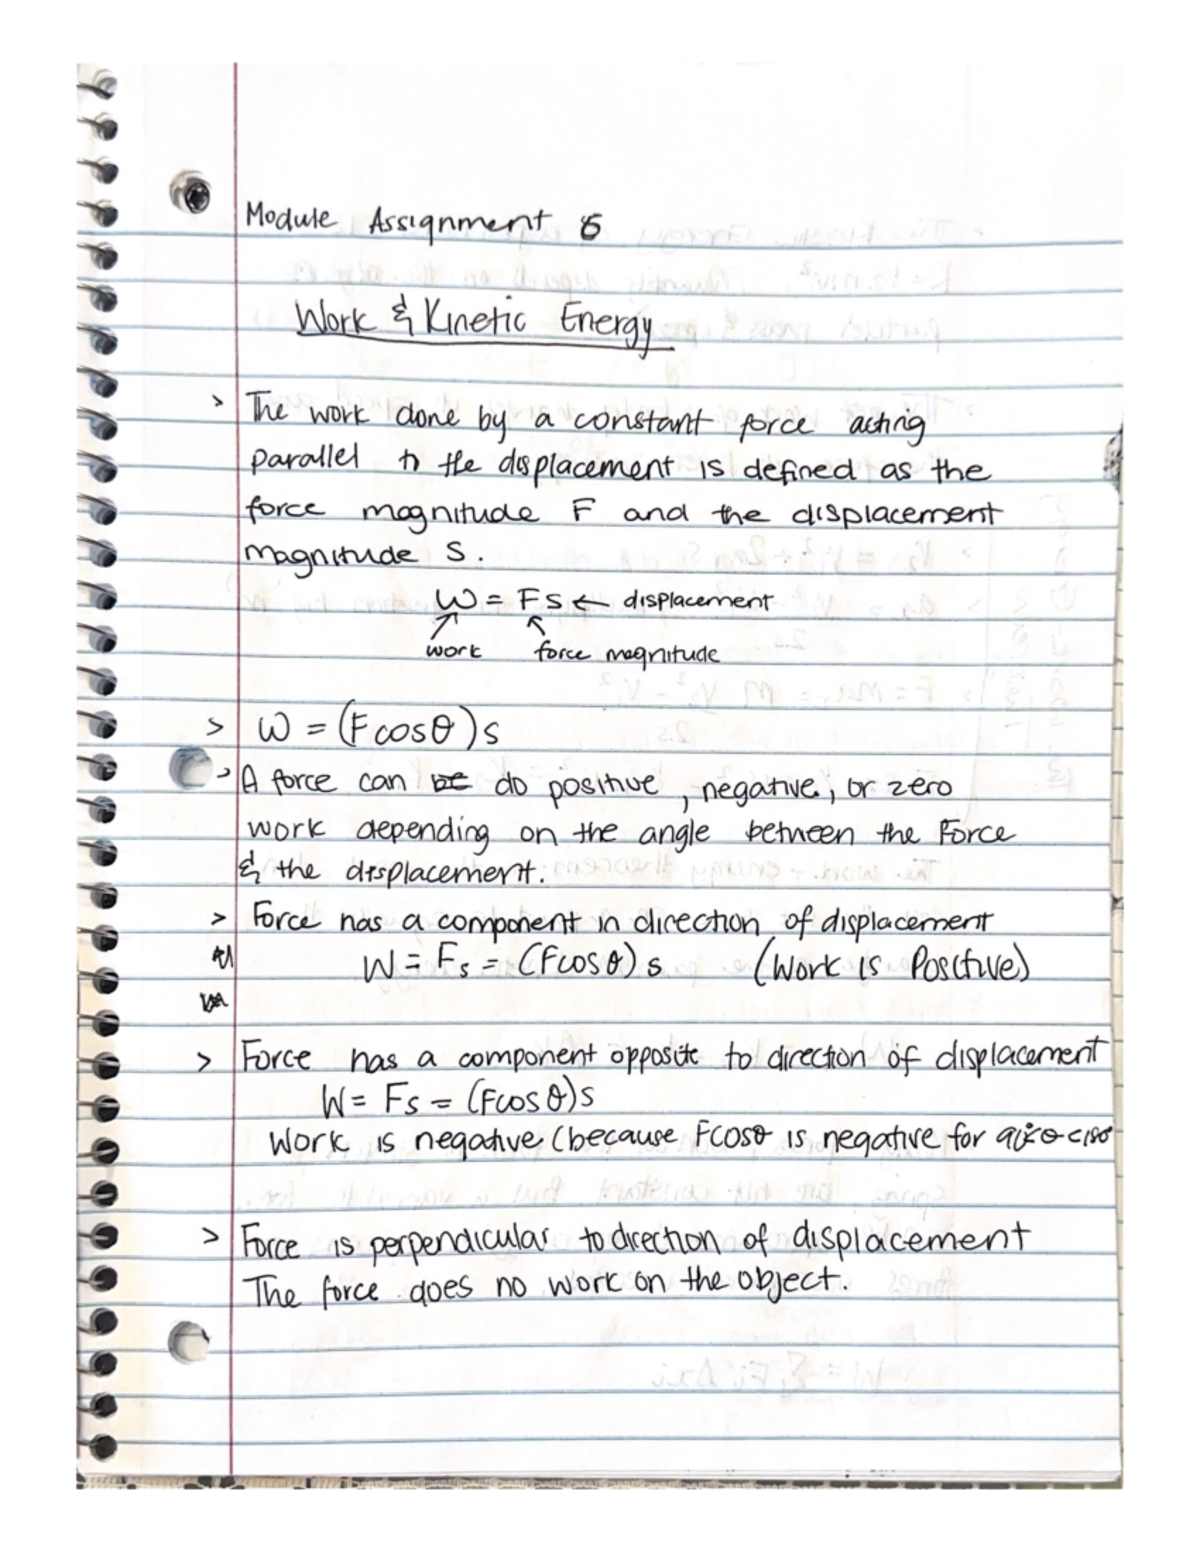 Module Assignment
Work & Kinetic Energy
> The work done by a constant force acting
parallel to the displacement is defined as the
force magnitude F and the displacement
magnitude S.
W = Fs ← displacement
work force magnitude
> W = (Fcosθ)s
> A force can be do positive, negative, or zero
work depending on the angle between the Force
& the displacement.
> Force has a component in direction of displacement
W = Fs = (Fcosθ)s (Work is Positive)
> Force has a component opposite to direction of displacement
W = Fs = (Fcosθ)s
Work is negative (because Fcosθ is negative for
> Force is perpendicular to direction of displacement
The force does no work on the object.